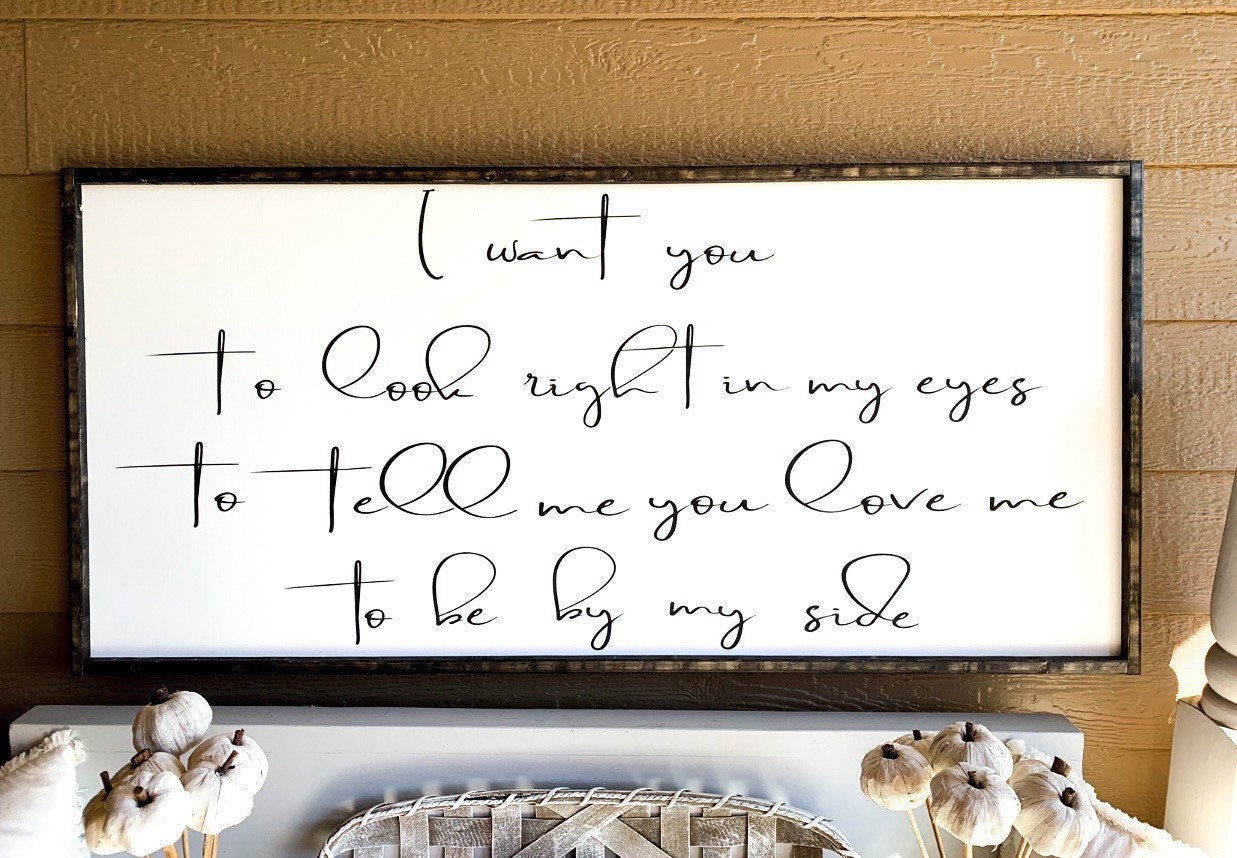 I want you
to look right in my eyes
to tell me you love me
to be by my side